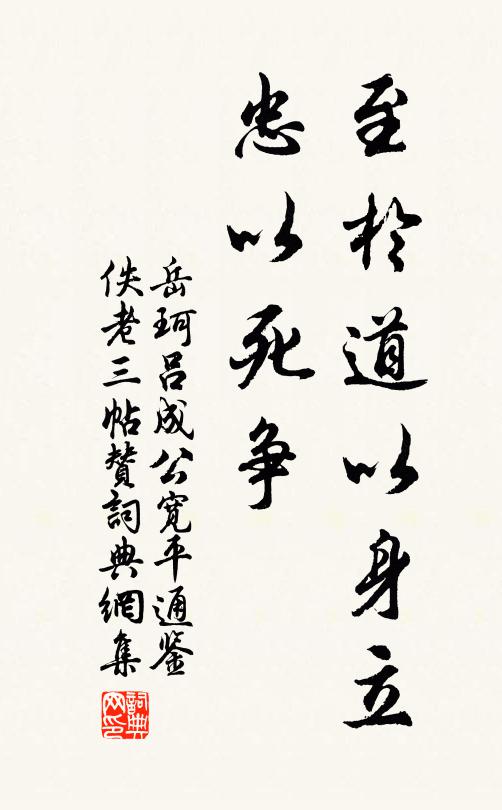 至於道以身立
忠以死争
岳珂吕成公宽平通鉴
佚老三帖赞詞典網集
詞典网印